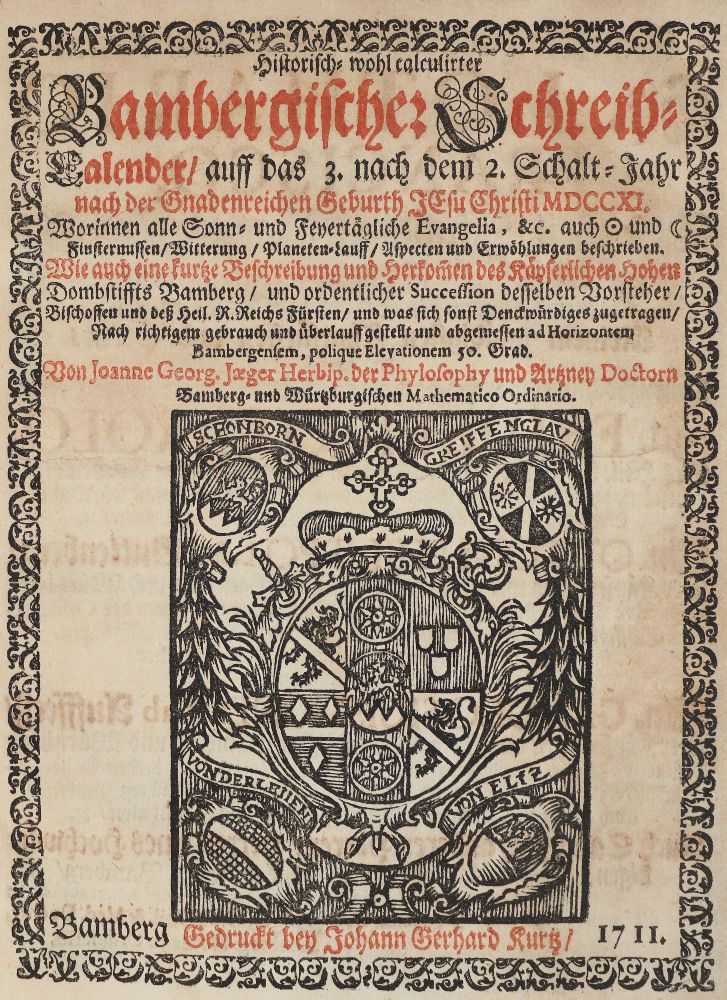 Historisch- wohl calculirter
Bambergischer Schreib-
Calender/ auff das 3. nach dem 2. Schalt-Jahr
nach der Gnadenreichen Geburth JEsu Christi MDCCXI.
Worinnen alle Sonn- und Feyertägliche Evangelia, &c. auch ☉ und ☾
Finsternussen/ Witterung / Planeten-Lauff/ Aspecten und Erwöhlungen beschrieben.
Wie auch eine kurtze Beschreibung und Herkom̃en des Käyserlichen Hohen
Dombstiffts Bamberg/ und ordentlicher Succession desselben Vorsteher/
Bischoffen und deß Heil. R. Reichs Fürsten/ und was sich sonst Denckwürdiges zugetragen/
Nach richtigem gebrauch und überlauff gestellt und abgemessen ad Horizontem
Bambergensem, polique Elevationem 50. Grad.
Von Joanne Georg. Jæger Herbip. der Phylosophy und Artzney Doctorn
Bamberg- und Würtzburgischen Mathematico Ordinario.
SCHONBORN
GREIFFENCLAV
VONDERLEIIEN
VON ELTZ
Bamberg Gedruckt bey Johann Gerhard Kurtz/ 1711.